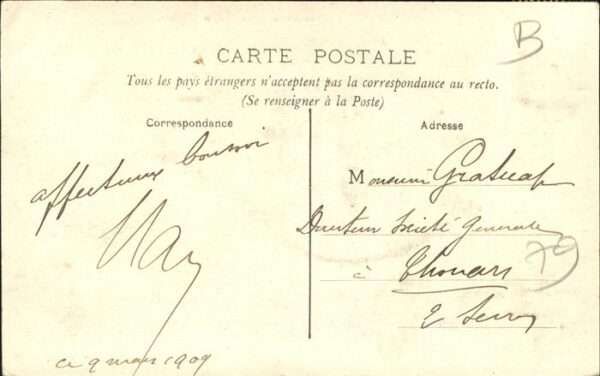 B
CARTE POSTALE
Tous les pays étrangers n'acceptent pas la correspondance au recto.
(Se renseigner à la Poste)
Correspondance
affectueux bonsoir
ce 9 mars 1909
Adresse
Monsieur Gratecap
Directeur Société Generale
à Thouars
79
2 Sevres